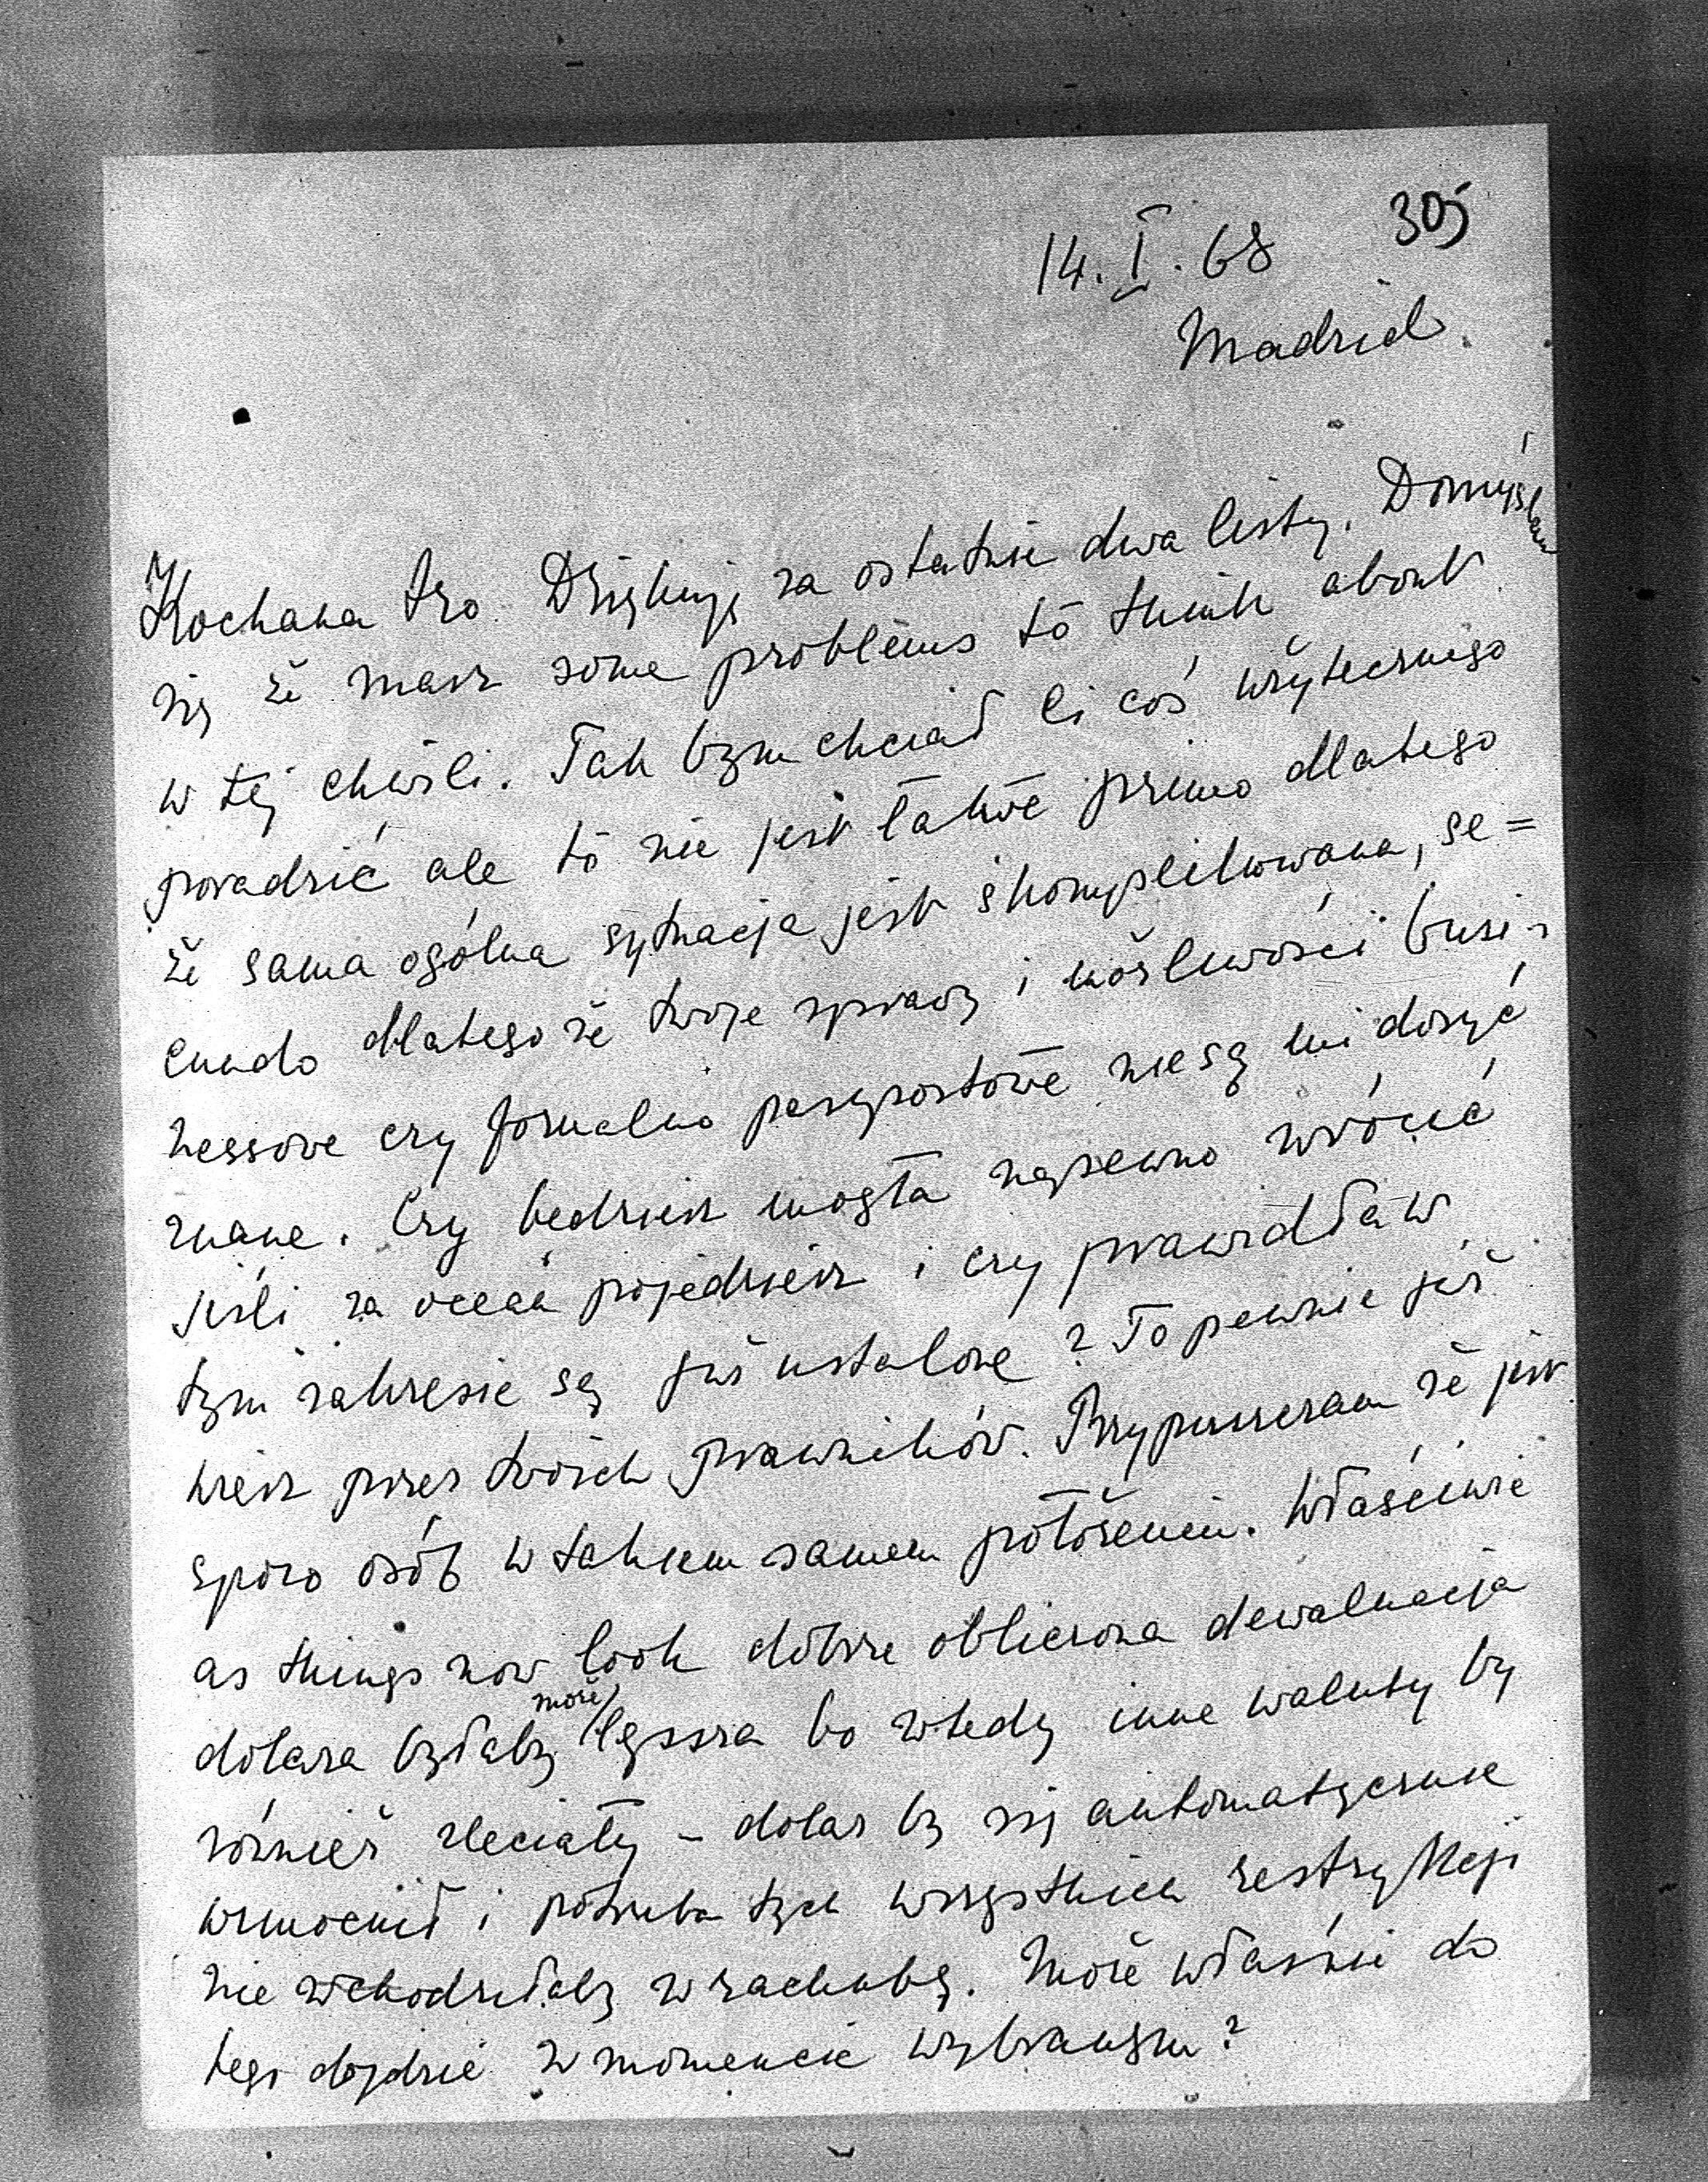 305
14.I.68
Madrid.
Kochana Iro. Dziękuję za ostatnie dwa listy. Domyślam
się że masz some problems to think about
w tej chwili. Tak bym chciał ci coś użytecznego
poradzić ale to nie jest łatwe primo dlatego
że sama ogólna sytuacja jest skomplikowana, se=
cundo dlatego że twoje sprawy i możliwości busi-
nessowe czy formalno paszportowe nie są mi dosyć
znane. Czy będziesz mogła napewno wrócić
jeśli za ocean pojedziesz i czy prawidła w
tym zakresie są już ustalone? To pewnie już
wiesz przez twoich prawników. Przypuszczam że jest
sporo osób w takiem samem położeniu. Właściwie
as things now look dobrze obliczona dewaluacja
dolara byłaby może lepsza bo wtedy inne waluty by
również zleciały – dolar by się automatycznie
wzmocnił i potrzeba tych wszystkich restrykcji
nie wchodziłaby w rachubę. Może właśnie do
tego dojdzie w momencie wybranym?